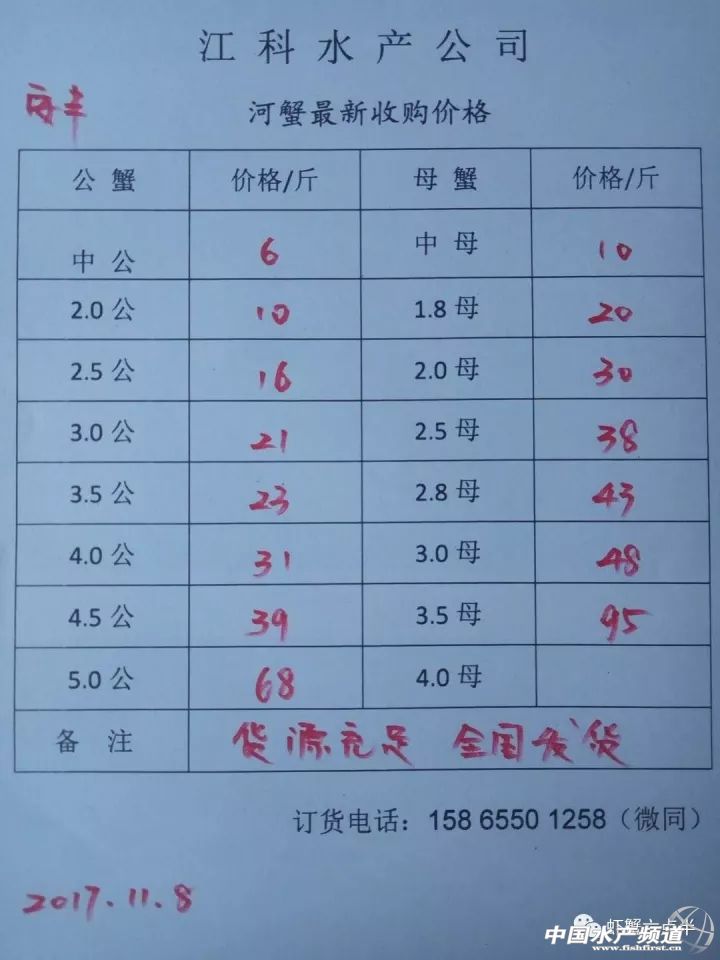 江科水产公司
河蟹最新收购价格
公蟹 价格/斤 母蟹 价格/斤
中公 6 中母 10
2.0公 10 1.8母 20
2.5公 16 2.0母 30
3.0公 21 2.5母 38
3.5公 23 2.8母 43
4.0公 31 3.0母 48
4.5公 39 3.5母 95
5.0公 68 4.0母
备注 货源充足 全国发货
订货电话：158 6550 1258（微同）
2017.11.8
虾蟹六点半
中国水产频道
www.fishfirst.cn